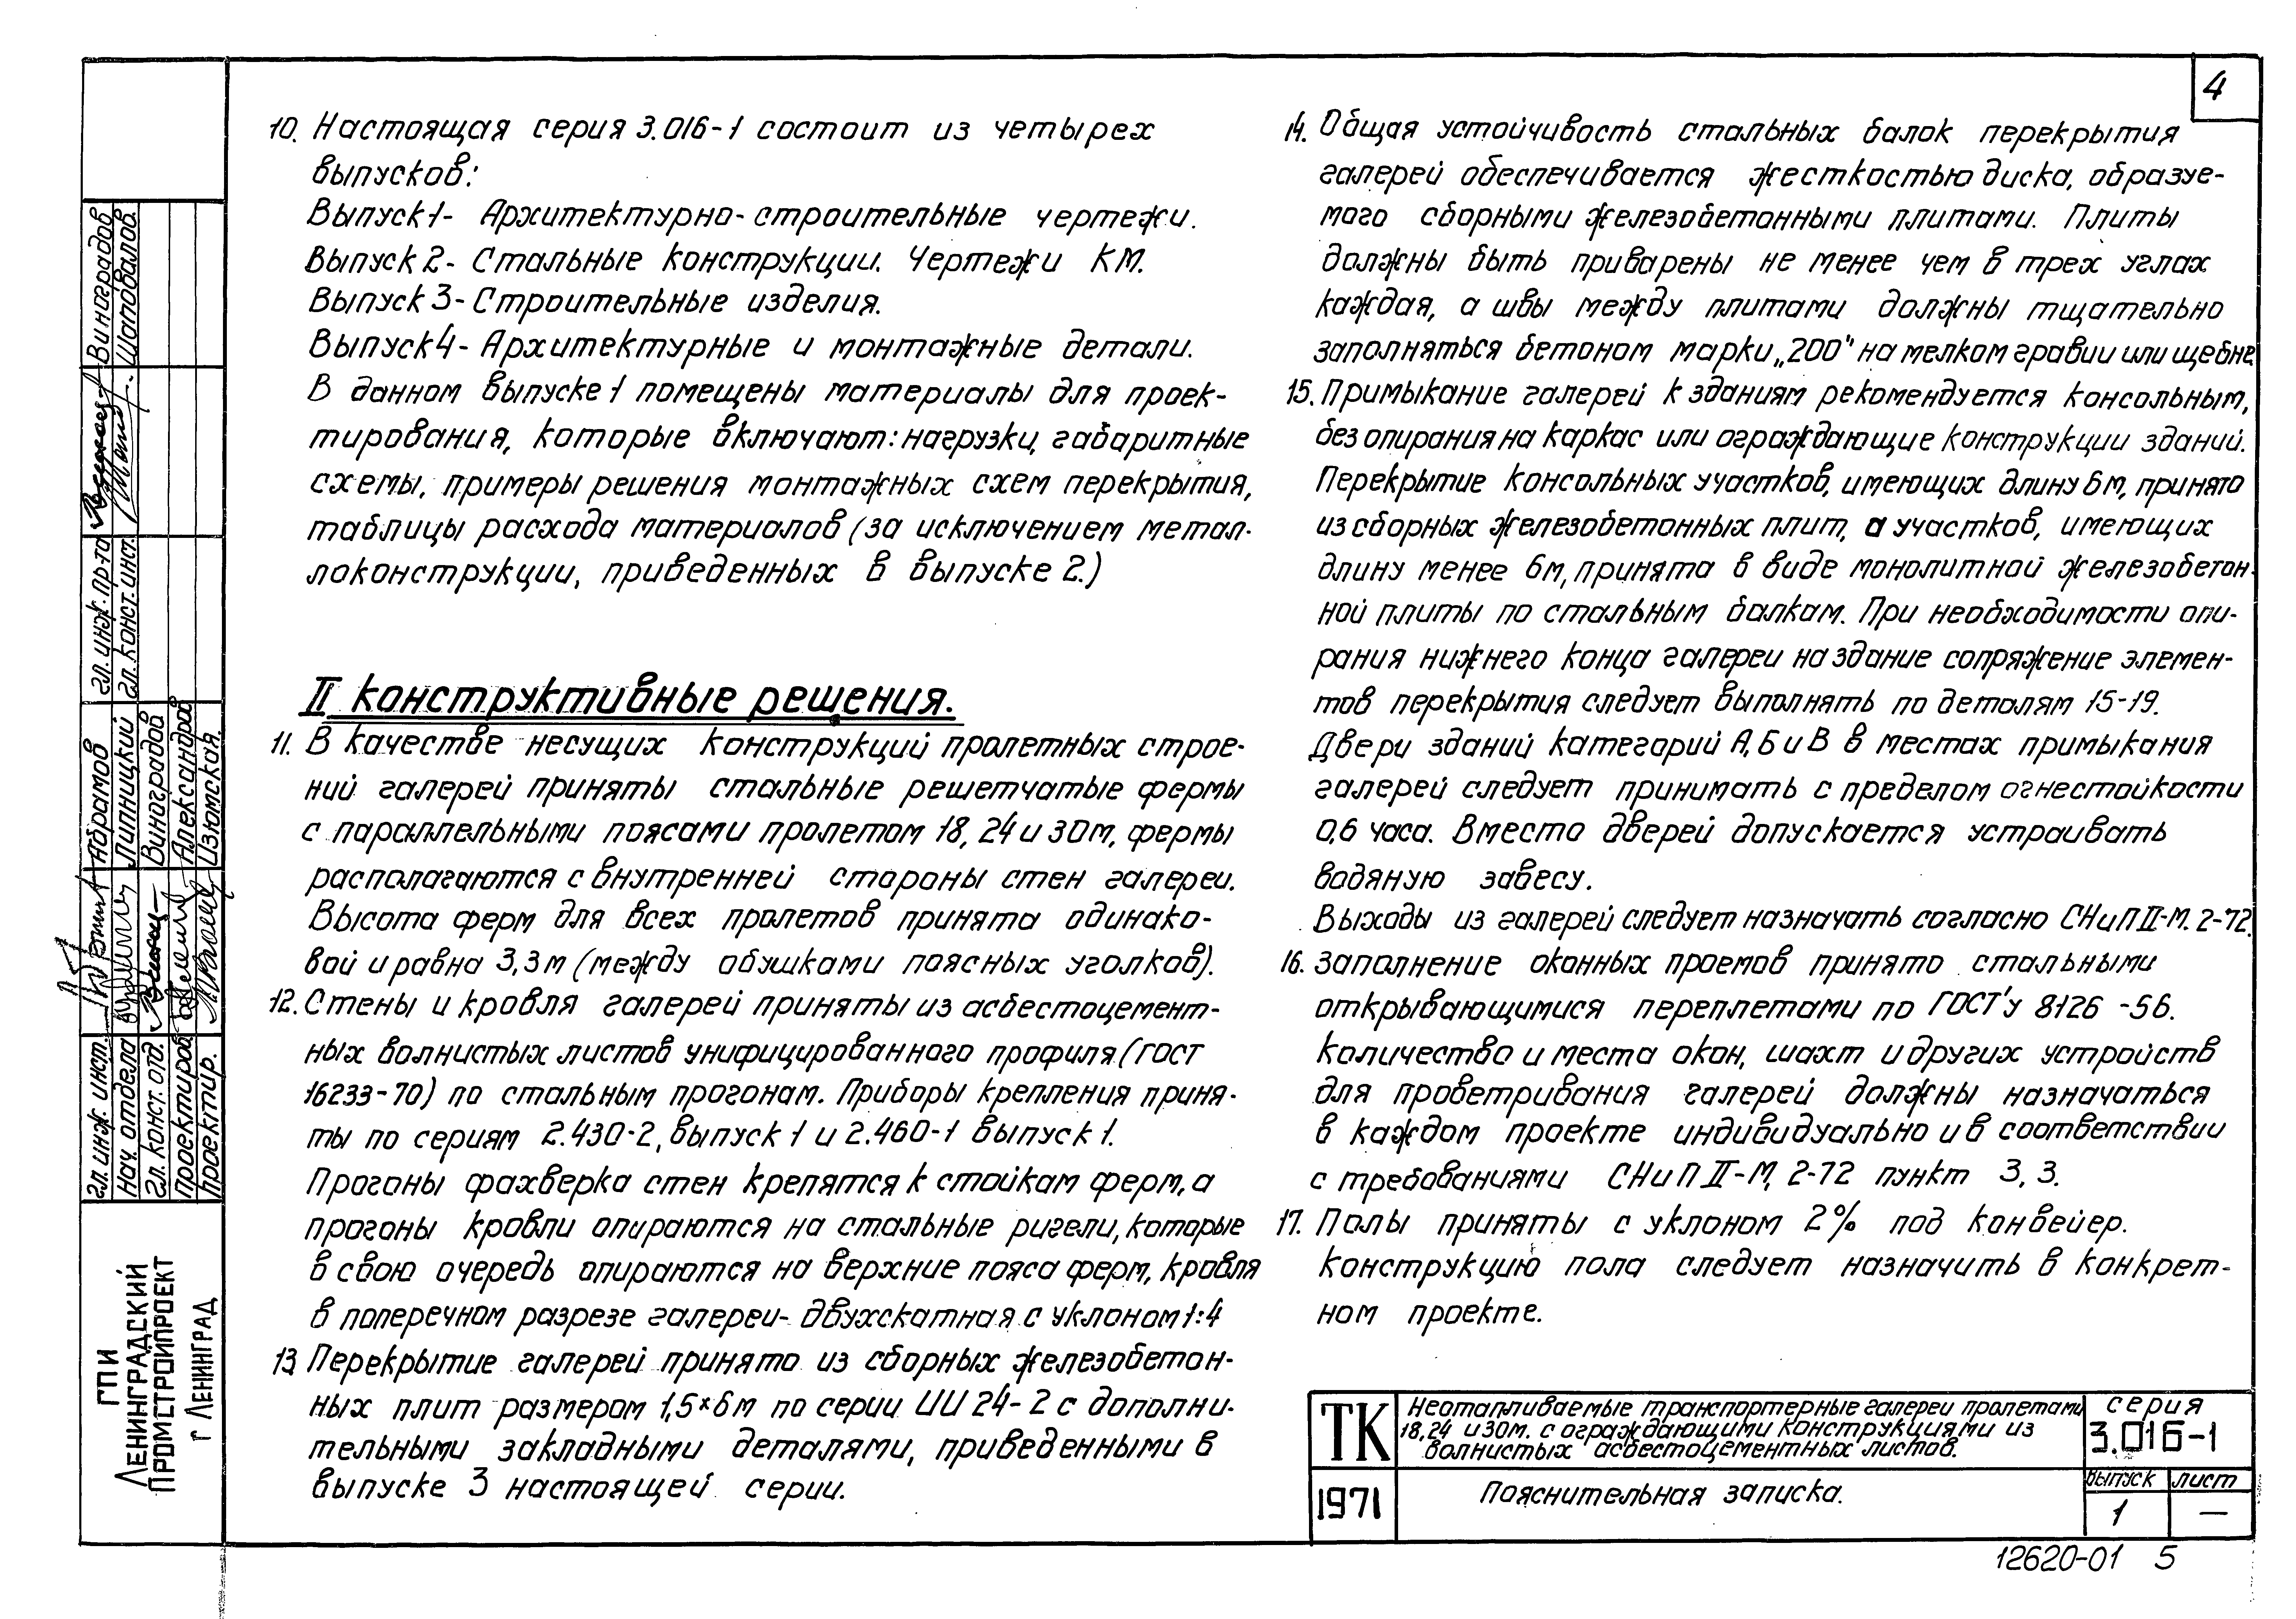 4
10. Настоящая серия 3.016-1 состоит из четырех
выпусков:
Выпуск 1- Архитектурно-строительные чертежи.
Выпуск 2- Стальные конструкции. Чертежи КМ.
Выпуск 3- Строительные изделия.
Выпуск 4- Архитектурные и монтажные детали.
В данном выпуске 1 помещены материалы для проек-
тирования, которые включают: нагрузки, габаритные
схемы, примеры решения монтажных схем перекрытия,
таблицы расхода материалов (за исключением метал-
локонструкции, приведенных в выпуске 2.)
II Конструктивные решения.
11. В качестве несущих конструкций пролетных строе-
ний галерей приняты стальные решетчатые фермы
с параллельными поясами пролетом 18, 24 и 30м, фермы
располагаются с внутренней стороны стен галереи.
Высота ферм для всех пролетов принята одинако-
вой и равна 3,3м (между обушками поясных уголков).
12. Стены и кровля галерей приняты из асбестоцемент-
ных волнистых листов унифицированного профиля (ГОСТ
16233-70) по стальным прогонам. Приборы крепления приня-
ты по сериям 2.430-2, выпуск 1 и 2.460-1 выпуск 1.
Прогоны фахверка стен крепятся к стойкам ферм, а
прогоны кровли опираются на стальные ригели, которые
в свою очередь опираются на верхние пояса ферм, кровля
в поперечном разрезе галереи- двухскатная с уклоном 1:4
13. Перекрытие галерей принято из сборных железобетон-
ных плит размером 1,5×6м по серии ИИ 24-2 с дополни-
тельными закладными деталями, приведенными в
выпуске 3 настоящей серии.
14. Общая устойчивость стальных балок перекрытия
галерей обеспечивается жесткостью диска, образуе-
мого сборными железобетонными плитами. Плиты
должны быть приварены не менее чем в трех углах
каждая, а швы между плитами должны тщательно
заполняться бетоном марки „200" на мелком гравии или щебне.
15. Примыкание галерей к зданиям рекомендуется консольным,
без опирания на каркас или ограждающие конструкции зданий.
Перекрытие консольных участков, имеющих длину 6м, принято
из сборных железобетонных плит, а участков, имеющих
длину менее 6м, принята в виде монолитной железобетон-
ной плиты по стальным балкам. При необходимости опи-
рания нижнего конца галереи на здание сопряжение элемен-
тов перекрытия следует выполнять по деталям 15-19.
Двери зданий категорий А, Б и В в местах примыкания
галерей следует принимать с пределом огнестойкости
0,6 часа. Вместо дверей допускается устраивать
водяную завесу.
Выходы из галерей следует назначать согласно СНиП II-М. 2-72.
16. Заполнение оконных проемов принято стальными
открывающимися переплетами по ГОСТ'у 8126-56.
Количество и места окон, шахт и других устройств
для проветривания галерей должны назначаться
в каждом проекте индивидуально и в соответствии
с требованиями СНиП II-М, 2-72 пункт 3,3.
17. Полы приняты с уклоном 2% под конвейер.
Конструкцию пола следует назначить в конкрет-
ном проекте.
ТК
Неотапливаемые транспортерные галереи пролетами
18,24 и 30м. с ограждающими конструкциями из
волнистых асбестоцементных листов.
серия
3.016-1
1971
Пояснительная записка.
выпуск
лист
1
—
12620-01 5
гл. инж. пр-та Виноградов
гл. конст. инст. Шаповалов.
гл. инж. инст. Абрамов
Нач. отдела Липницкий
Гл. конст. отд. Виноградов
Проектиров. Александров
Проектир. Изютская.
ГПИ
Ленинградский
Промстройпроект
г Ленинград